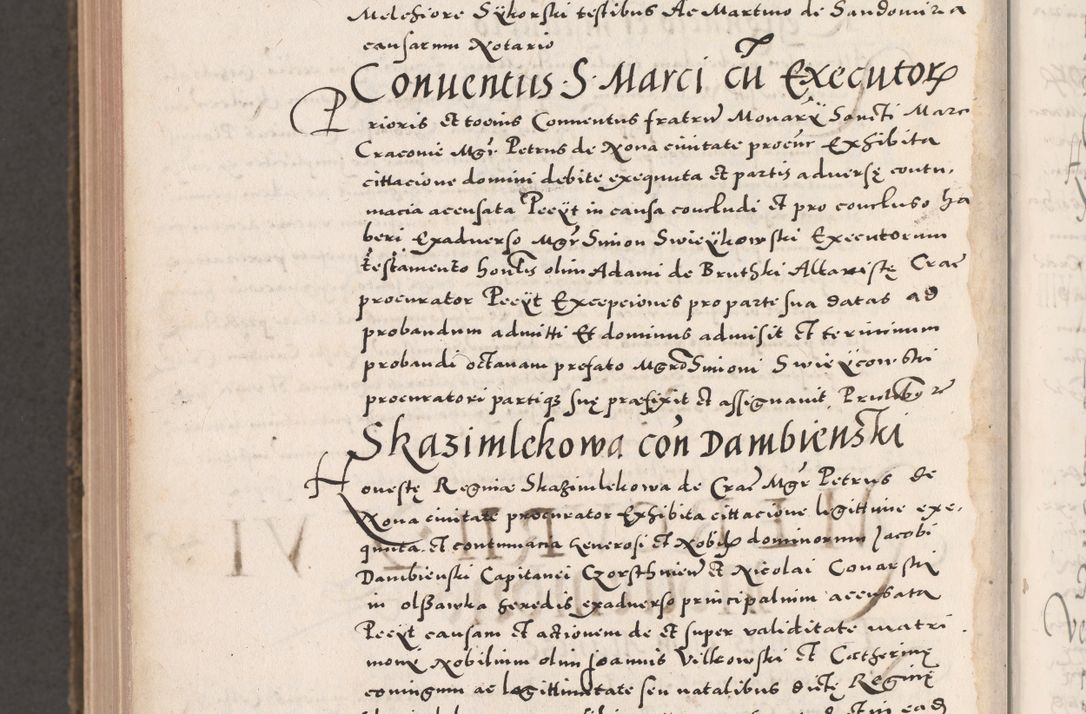 Melchiore Sÿkorski testibus Ac Martino de Sandomiria
causarum Notario
Conuentus S. Marci cū Executorꝝ
Prioris et tocius Conuentus fratrū Monarÿ Sancti Marci
Cracouie Mgr̄ Petrus de Noua ciuitate procur Exhibita
cittacione domini debite exequuta et partis aduersę contu-
macia accusata Peciÿt in causa concludi et pro concluso ha
beri Exaduerso Mgr̄ Simon Swieÿkowski Executorum
testamento honlis olim Adami de Bruthki Altaristę Crac̄
procurator Peciÿt Excepciones pro parte sua datas ad
probandum admitti Et dominus admisit et terminum
probandi octauam prefato Mgrō Simoni Swieÿcowski
procuratori partiqꝫ suę præfixit et assignauit
Skazimlekowa con Dambienski
Honestę Reginæ Skazimlekowa de Crac̄ Mgr̄ Petrus de
Noua ciuitate procurator Exhibita cittacione legittime exe-
quuta et contumacia Generosi et Nobilꝭ dominorum Jacobi
Dambienski Capitanei Czorsthinen̄ et Nicolai Conarski
in olszawka heredis exaduerso principalium accusata
Peciÿt causam et actionem de et super validitate matri
monÿ Nobilium olim Joannis Vilkowski et Catherinę
coniugum ac legittimitate seu natalibus dictę Reginę